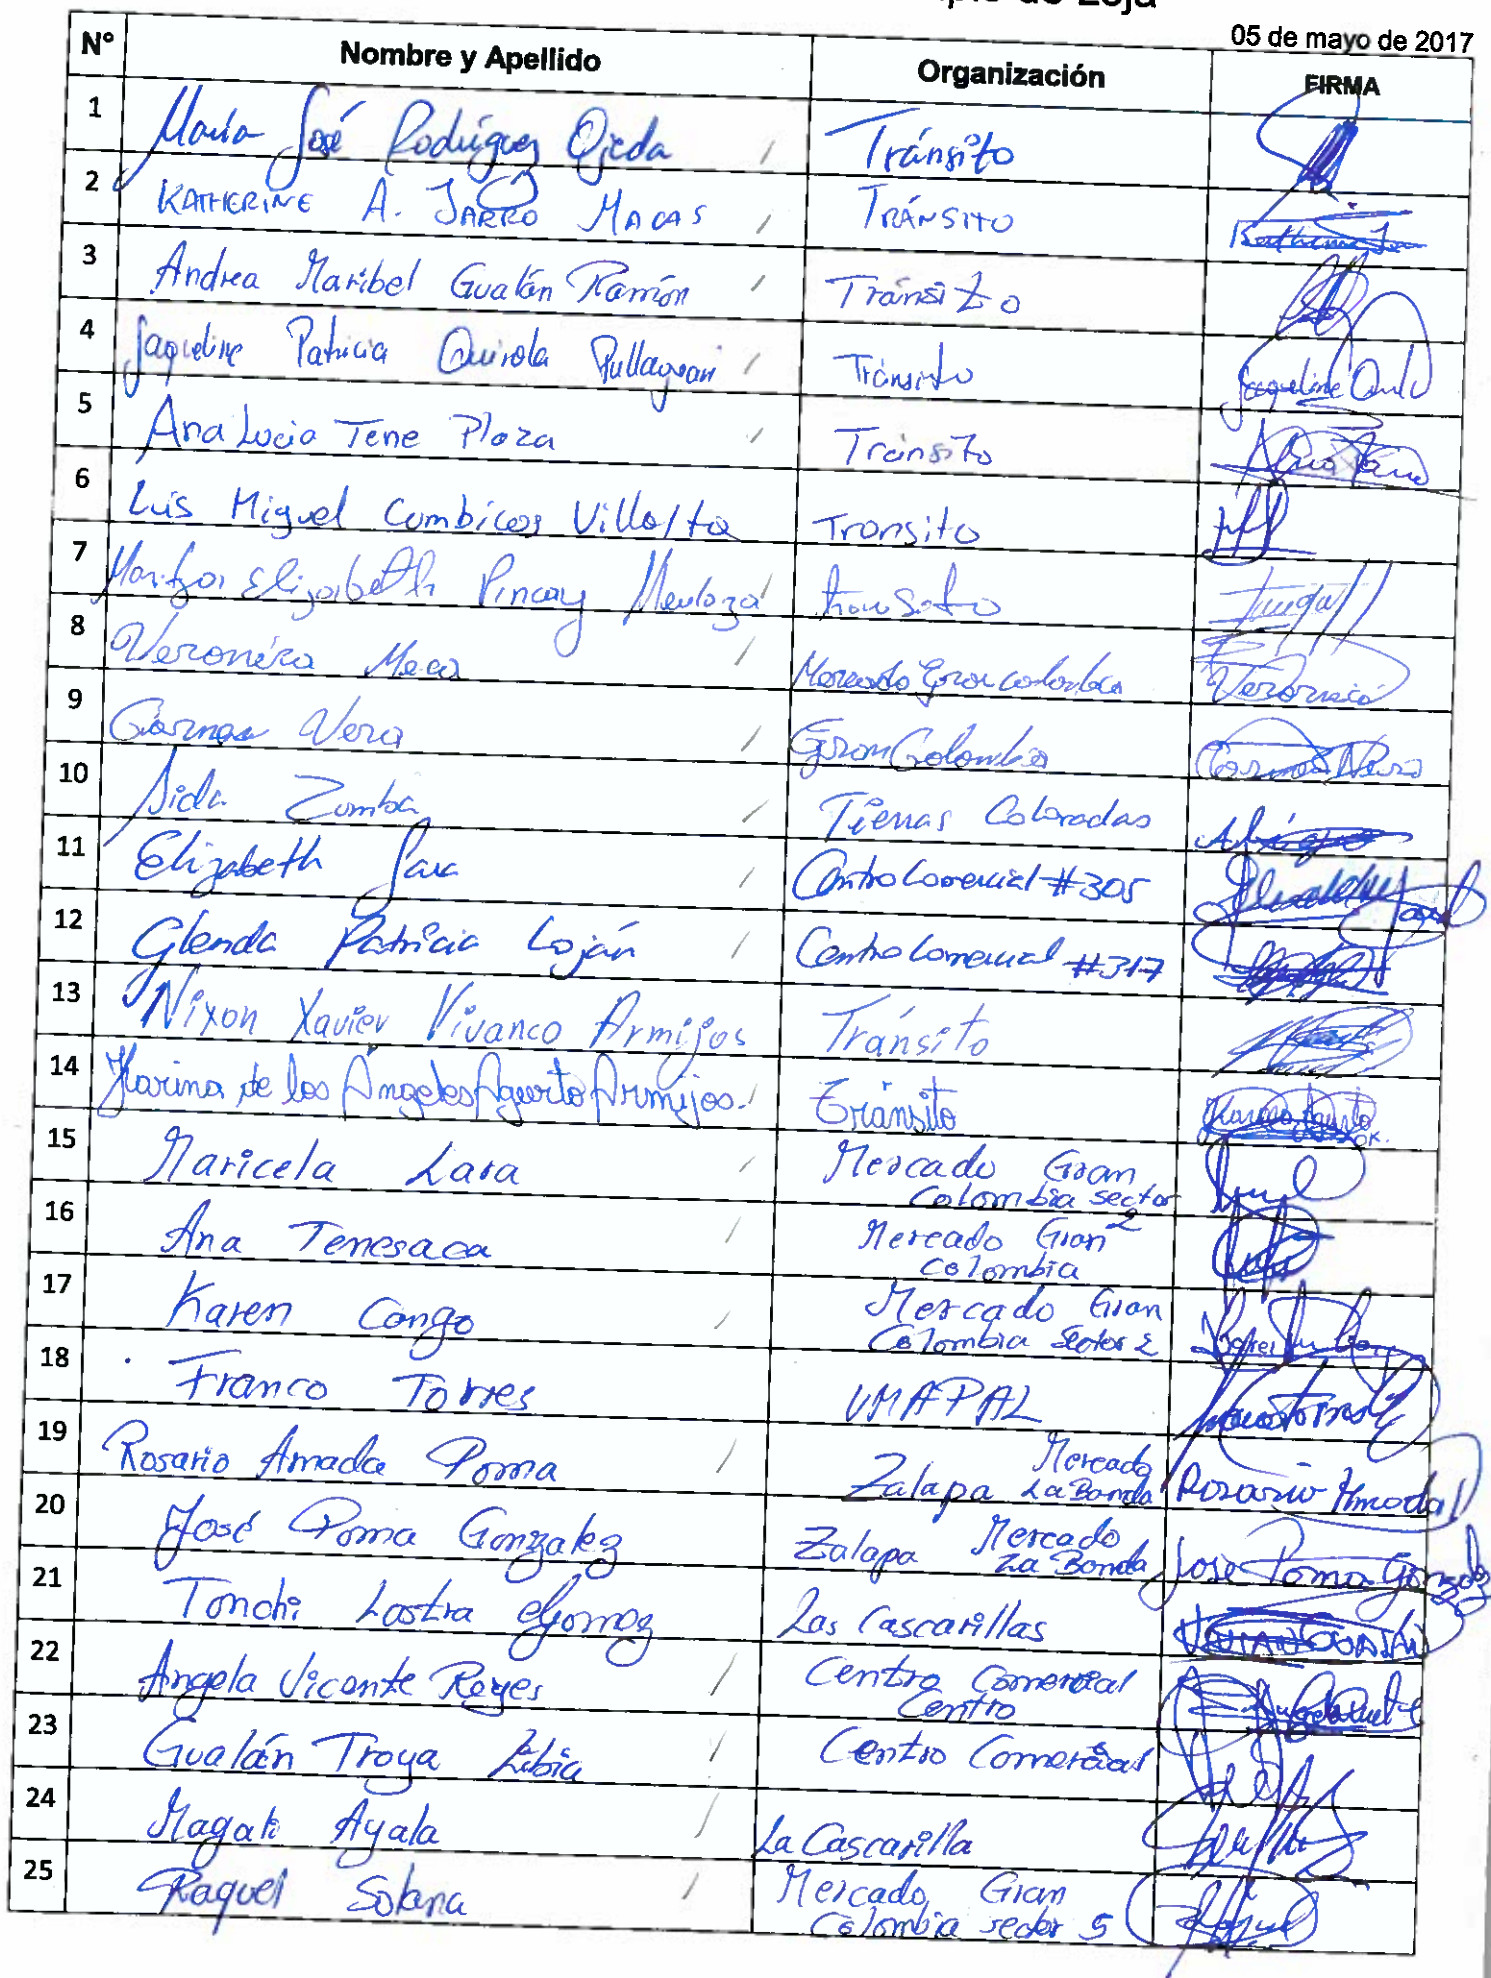 de Loja
05 de mayo de 2017
N° Nombre y Apellido Organización FIRMA
1 María José Rodríguez Ojeda Tránsito
2 KATHERINE A. JARRO MACAS TRÁNSITO
3 Andrea Maribel Gualán Ramón Tránsito
4 Jaqueline Patricia Quirola Tránsito Jaqueline
5 Ana Lucia Tene Plaza Tránsito
6 Luis Miguel Cumbicos Villalta Transito
7 Maritza Elizabeth Pincay Mendoza transito
8 Veronica Meca Mercado Gran colombia Veronica
9 Carmen Vera Gran Colombia Carmen Vera
10 Aida Zumba Tierras Coloradas
11 Elizabeth Jara Centro Comercial #305
12 Glenda Patricia Loján Centro Comercial #317
13 Nixon Xavier Vivanco Armijos Tránsito
14 Karina de los Ángeles Agurto Armijos. Tránsito Karina Agurto
15 Maricela Lara Mercado Gran
Colombia sector
2
16 Ana Tenesaca Mercado Gran
Colombia
17 Karen Cango Mercado Gran
Colombia Sector 2 Karen
18 Franco Torres UMAPAL
19 Rosario Amada Poma Mercado
Zalapa La Banda Rosario Amada
20 José Poma Gonzalez Mercado
Zalapa La Banda Jose Poma Gonzalez
21 Tonchi Lastra Gomez Las Cascarillas
22 Angela Vicente Reyes Centro Comercial
Centro
23 Gualán Troya Libia Centro Comercial
24 Magali Ayala La Cascarilla
25 Raquel Solana Mercado Gran
Colombia sector 5